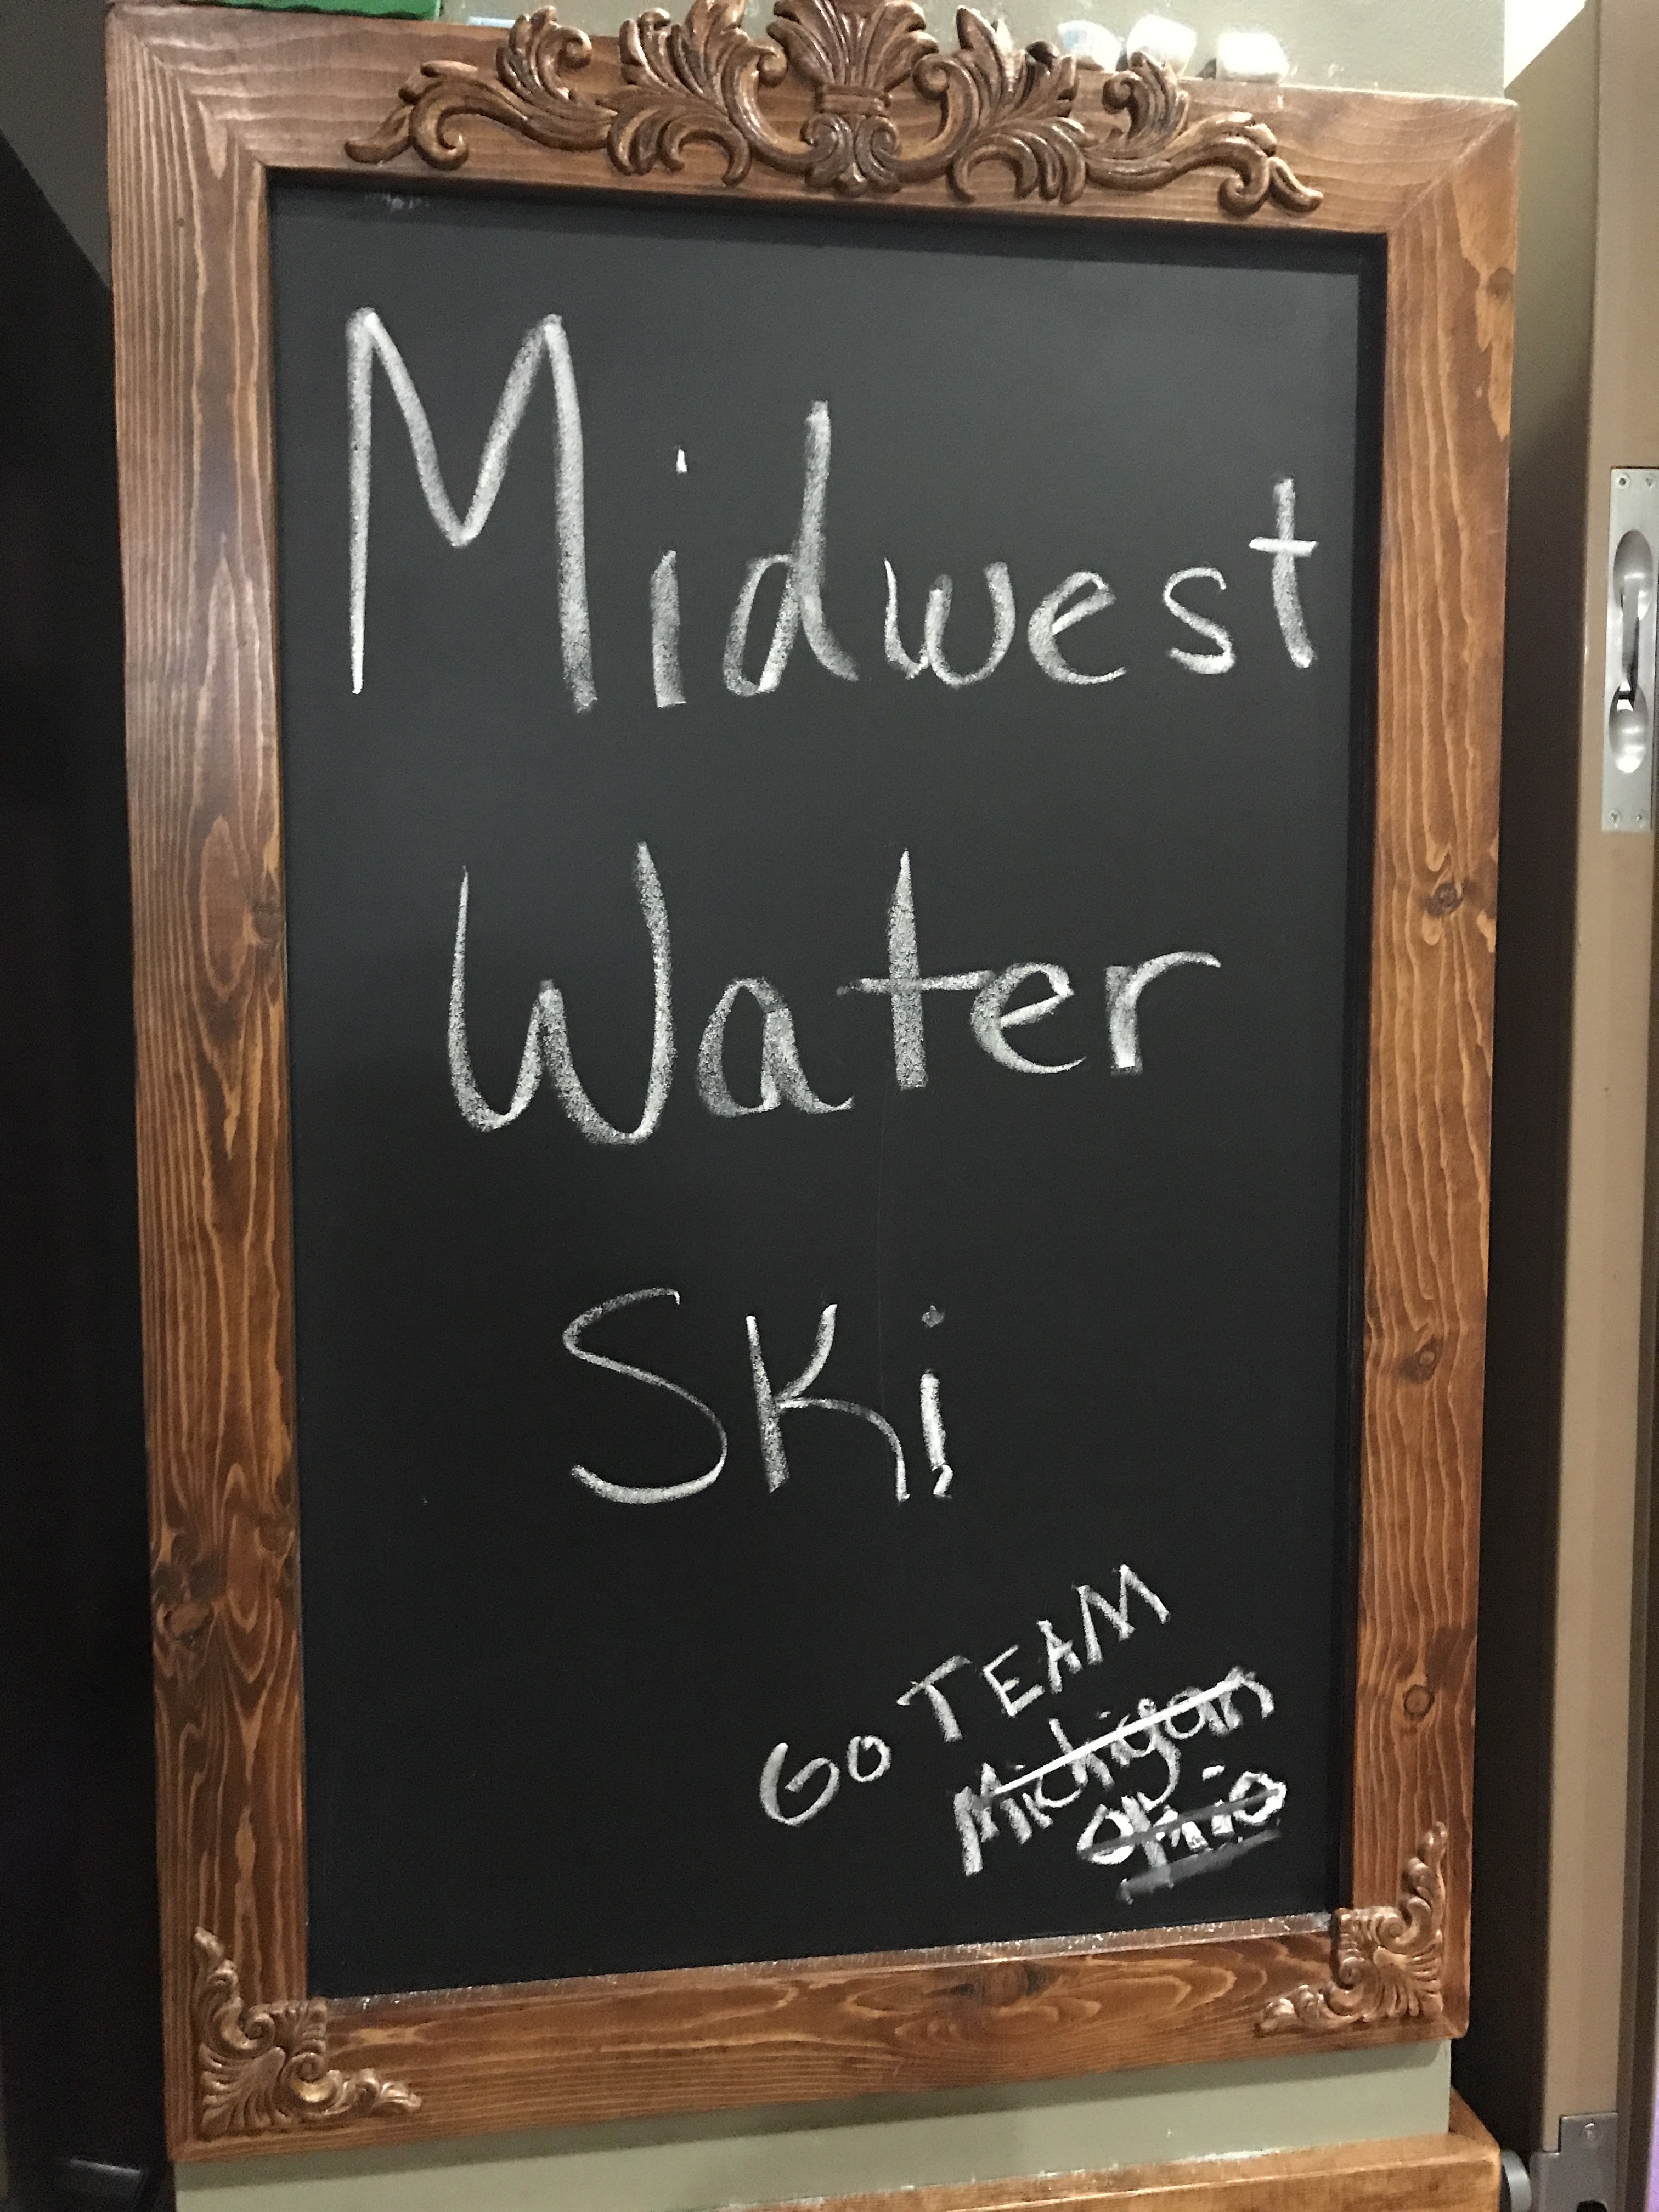 Midwest
Water
Ski
Go TEAM
Michigan
Ohio